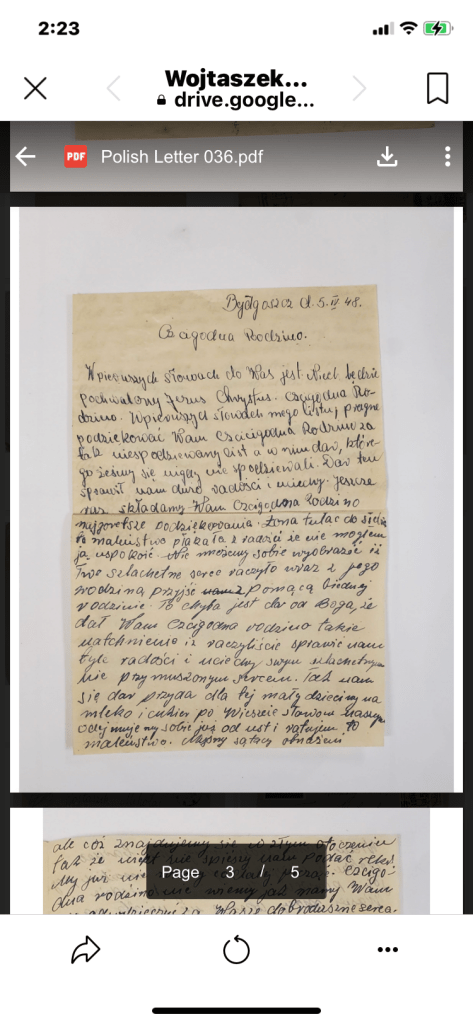 2:23
Wojtaszek...
drive.google...
PDF Polish Letter 036.pdf
Bydgoszcz d. 5. II 48.
Czcigodna Rodzino.
Wpierwszych słowach do Was jest Niech będzie
pochwalony Jezus Chrystus. Czcigodna Ro-
dzino. Wpierwszych słowach mego listu, pragnę
podziękować Wam Czcigodna Rodzino za
tak niespodziewany list a w nim dar, które-
go żeśmy się nigdy nie spodziewali. Dar ten
sprawił nam dużo radości i uciechy. Jeszcze
raz składamy Wam Czcigodna Rodzino
najgorętsze podziękowania. Żona tuląc do siebie
to maleństwo płakała z radości że nie mogłem
ją uspokoić. Nie możemy sobie wyobrazić iż
Twe szlachetne serce raczyło wraz z jego
rodziną przyjść z pomocą biednej
rodzinie. To chyba jest dar od Boga, że
dał Wam Czcigodna rodzino takie
natchnienie iż raczyliście sprawić nam
tyle radości i uciechy swym szlachetnym
nie przymuszonym sercem. Tak nam
się dar przyda dla tej małej dzieciny na
mleko i cukier po
odejmujemy sobie już od ust i ratujem to
maleństwo. My
ale cóż znajdujemy się w złym otoczeniu
tak że nie nam podać rękę.
My już nie Czcigo-
dna rodzino nie wiemy jak mamy Wam
za Wasze dobroduszne serca.
Page 3 / 5